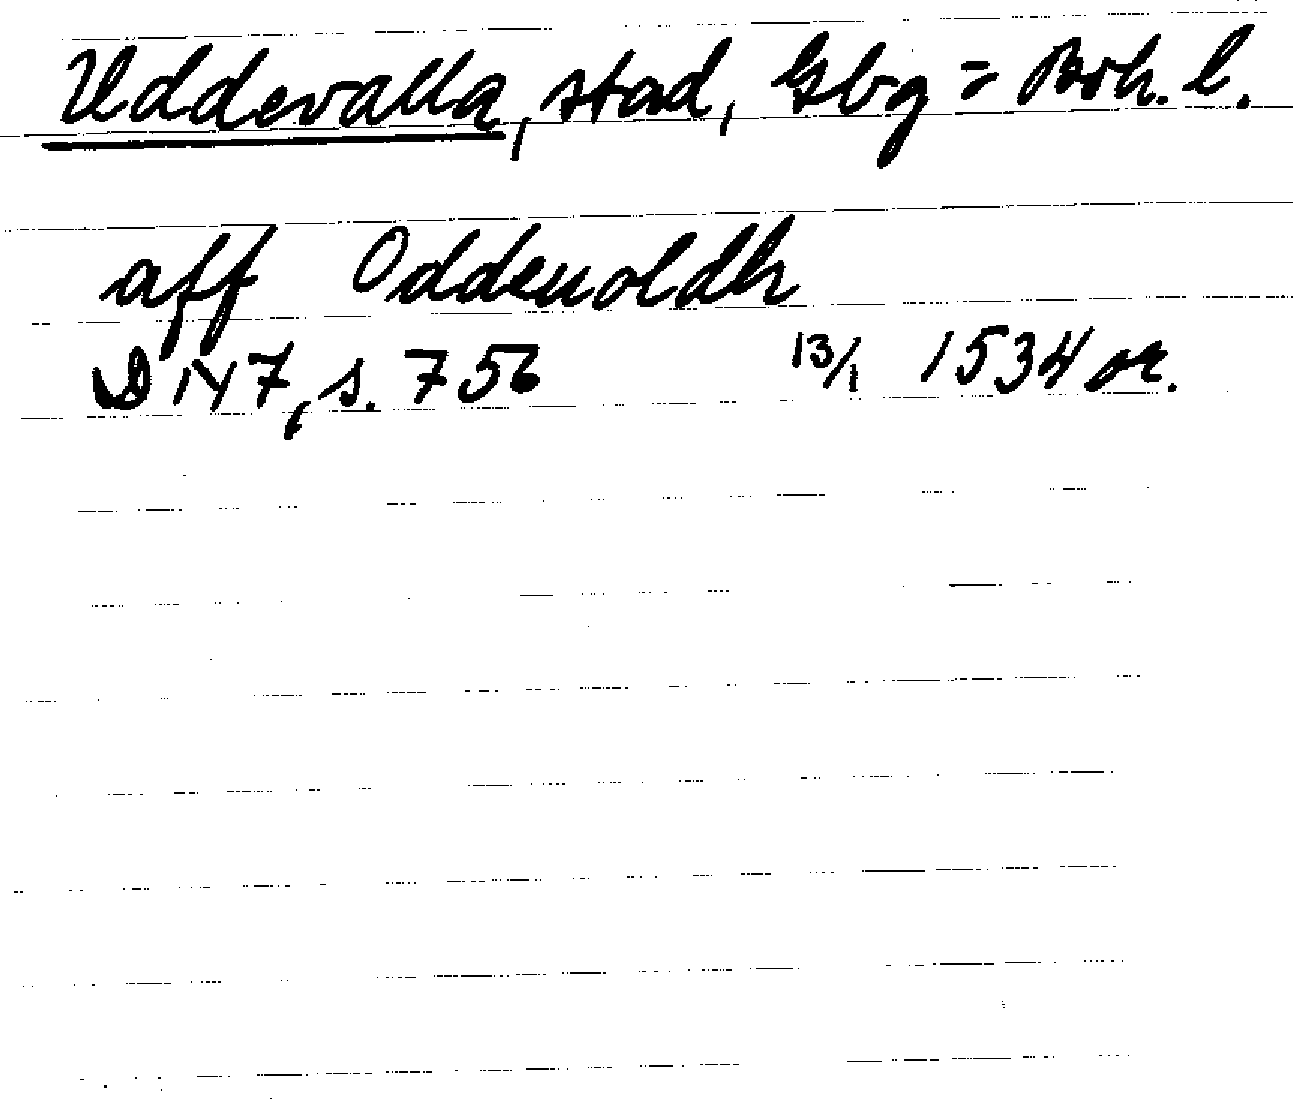 Uddevalla, stad, Gbg = Boh. l.
aff Oddeuoldh
D 147, s. 756 13/1 1534 or.